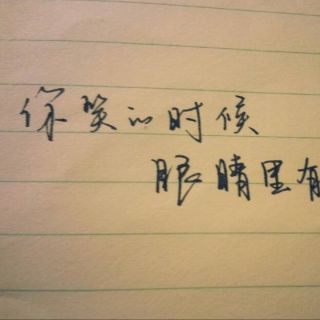 你笑的时候
眼睛里有